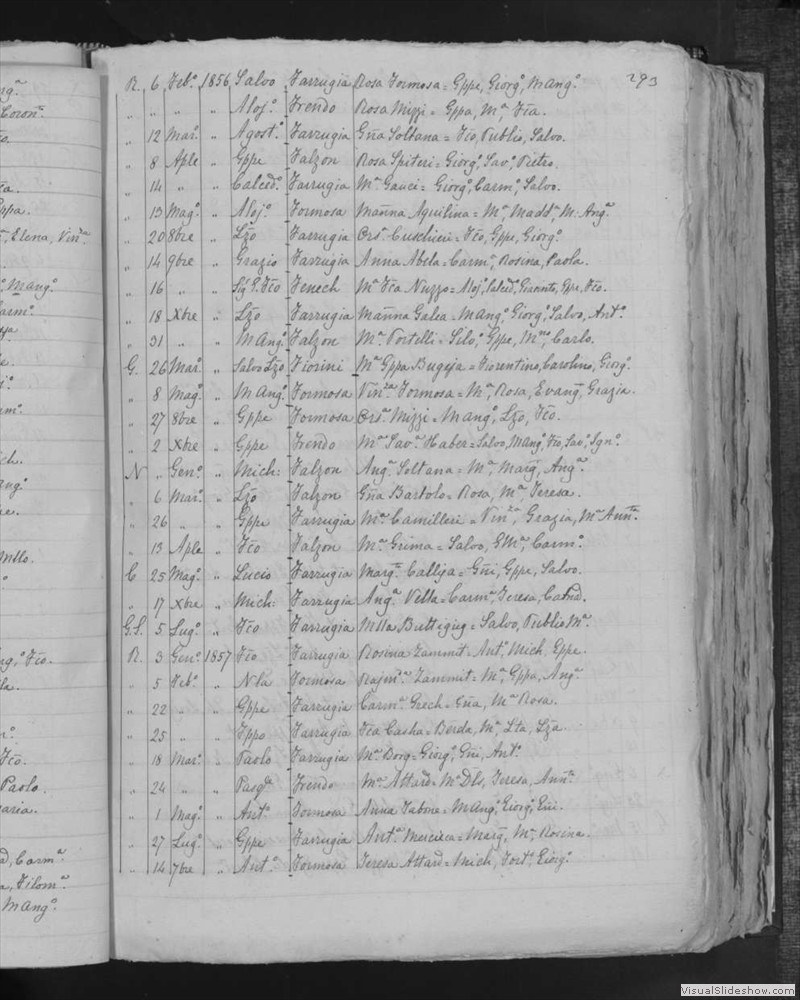 293
R. 6 Feb.º 1856 Salvo Farrugia Rosa Formosa = Gppe, Giorg.º, M Ang.ª
" " " " Aloj.º Frendo Rosa Mizzi = Gppa, M.ª, Fca.
" 12 Mar.º " Agost.º Farrugia Gña Soltana = Fco, Publio, Salvo.
" 8 Aple " Gppe Falzon Rosa Spiteri = Giorg.º, Sav.º, Pietro.
" 14 " " Calced.º Farrugia M.ª Gauci = Giorg.º, Carm.º, Salvo.
" 13 Mag.º " Aloj.º Formosa Manna Aquilina = M.ª, Madd.ª, M. Ang.ª
" 20 8bre " Lzo Farrugia Ors.ª Cuschieri = Fco, Gppe, Giorg.º
" 14 9bre " Grazio Farrugia Anna Abela = Carm.ª, Rosina, Paola.
" 16 " " Fco Fenech M.ª Fca Nuzzo = Aloj.º, Salced.º, Gppe, Fco.
" 18 Xbre " Lzo Farrugia Manna Galea = M Ang.º, Giorg.º, Salvo, Ant.º
" 31 " " M Ang.º Falzon M.ª Portelli = Silo.º, Gppe, Carlo.
G. 26 Mar.º " Salvo Lzo Fiorini M.ª Gppa Bugeja = Fiorentino, Carolina, Giorg.º
" 8 Mag.º " M Ang.º Formosa Vin.za Formosa = M.ª, Rosa, Evang.ª, Grazia.
" 27 8bre " Gppe Formosa Ors.ª Mizzi = M Ang.º, Lzo, Fco.
" 2 Xbre " Gppe Frendo M.ª Sav.ª Haber = Salvo, M Ang.º, Fco, Sav.º, Ign.º
N " Gen.º " Mich: Falzon Ang.ª Soltana = M.ª, Marg.ª, Ang.ª
" 6 Mar.º " Lzo Falzon Gña Bartolo = Rosa, M.ª, Teresa.
" 26 " " Gppe Farrugia M.ª Camilleri = Vin.za, Grazia, M.ª Aunn.ª
" 13 Aple " Fco Falzon M.ª Grima = Salvo, Carm.º
C. 25 Mag.º " Lucio Farrugia Marg.ª Calleja = Gñi, Gppe, Salvo.
" 17 Xbre " Mich: Farrugia Ang.ª Vella = Carm.ª, Teresa, Catnd.
G.S. 5 Lug.º " Fco Farrugia Mlla Buttigieg = Salvo, Publio M.ª
R. 3 Gen.º 1857 Fco Farrugia Rosina Zammit = Ant.º, Mich, Gppe.
" 5 Feb.º " Nla Formosa Rajm.ª Zammit = M.ª, Gppa, Ang.ª
" 22 " " Gppe Farrugia Carm.ª Grech = Gña, M.ª Rosa.
" 25 " " Fppo Farrugia Fca Casha = Borda, M.ª, Lta, Lza.
" 18 Mar.º " Paolo Farrugia M.ª Borg = Giorg.º, Gñi, Ant.º
" 24 " " Pasq.le Frendo M.ª Attard = M.ª Dls, Teresa, Aunn.ª
" 1 Mag.º " Ant.º Formosa Anna Fabone = M Ang.º, Giorg.º, Gñi.
" 27 Lug.º " Gppe Farrugia Ant.ª Mercieca = Marg.ª, M.ª Rosina.
" 14 7bre " Ant.º Formosa Teresa Attard = Mich, Fort.º, Giorg.º
VisualSlideshow.com